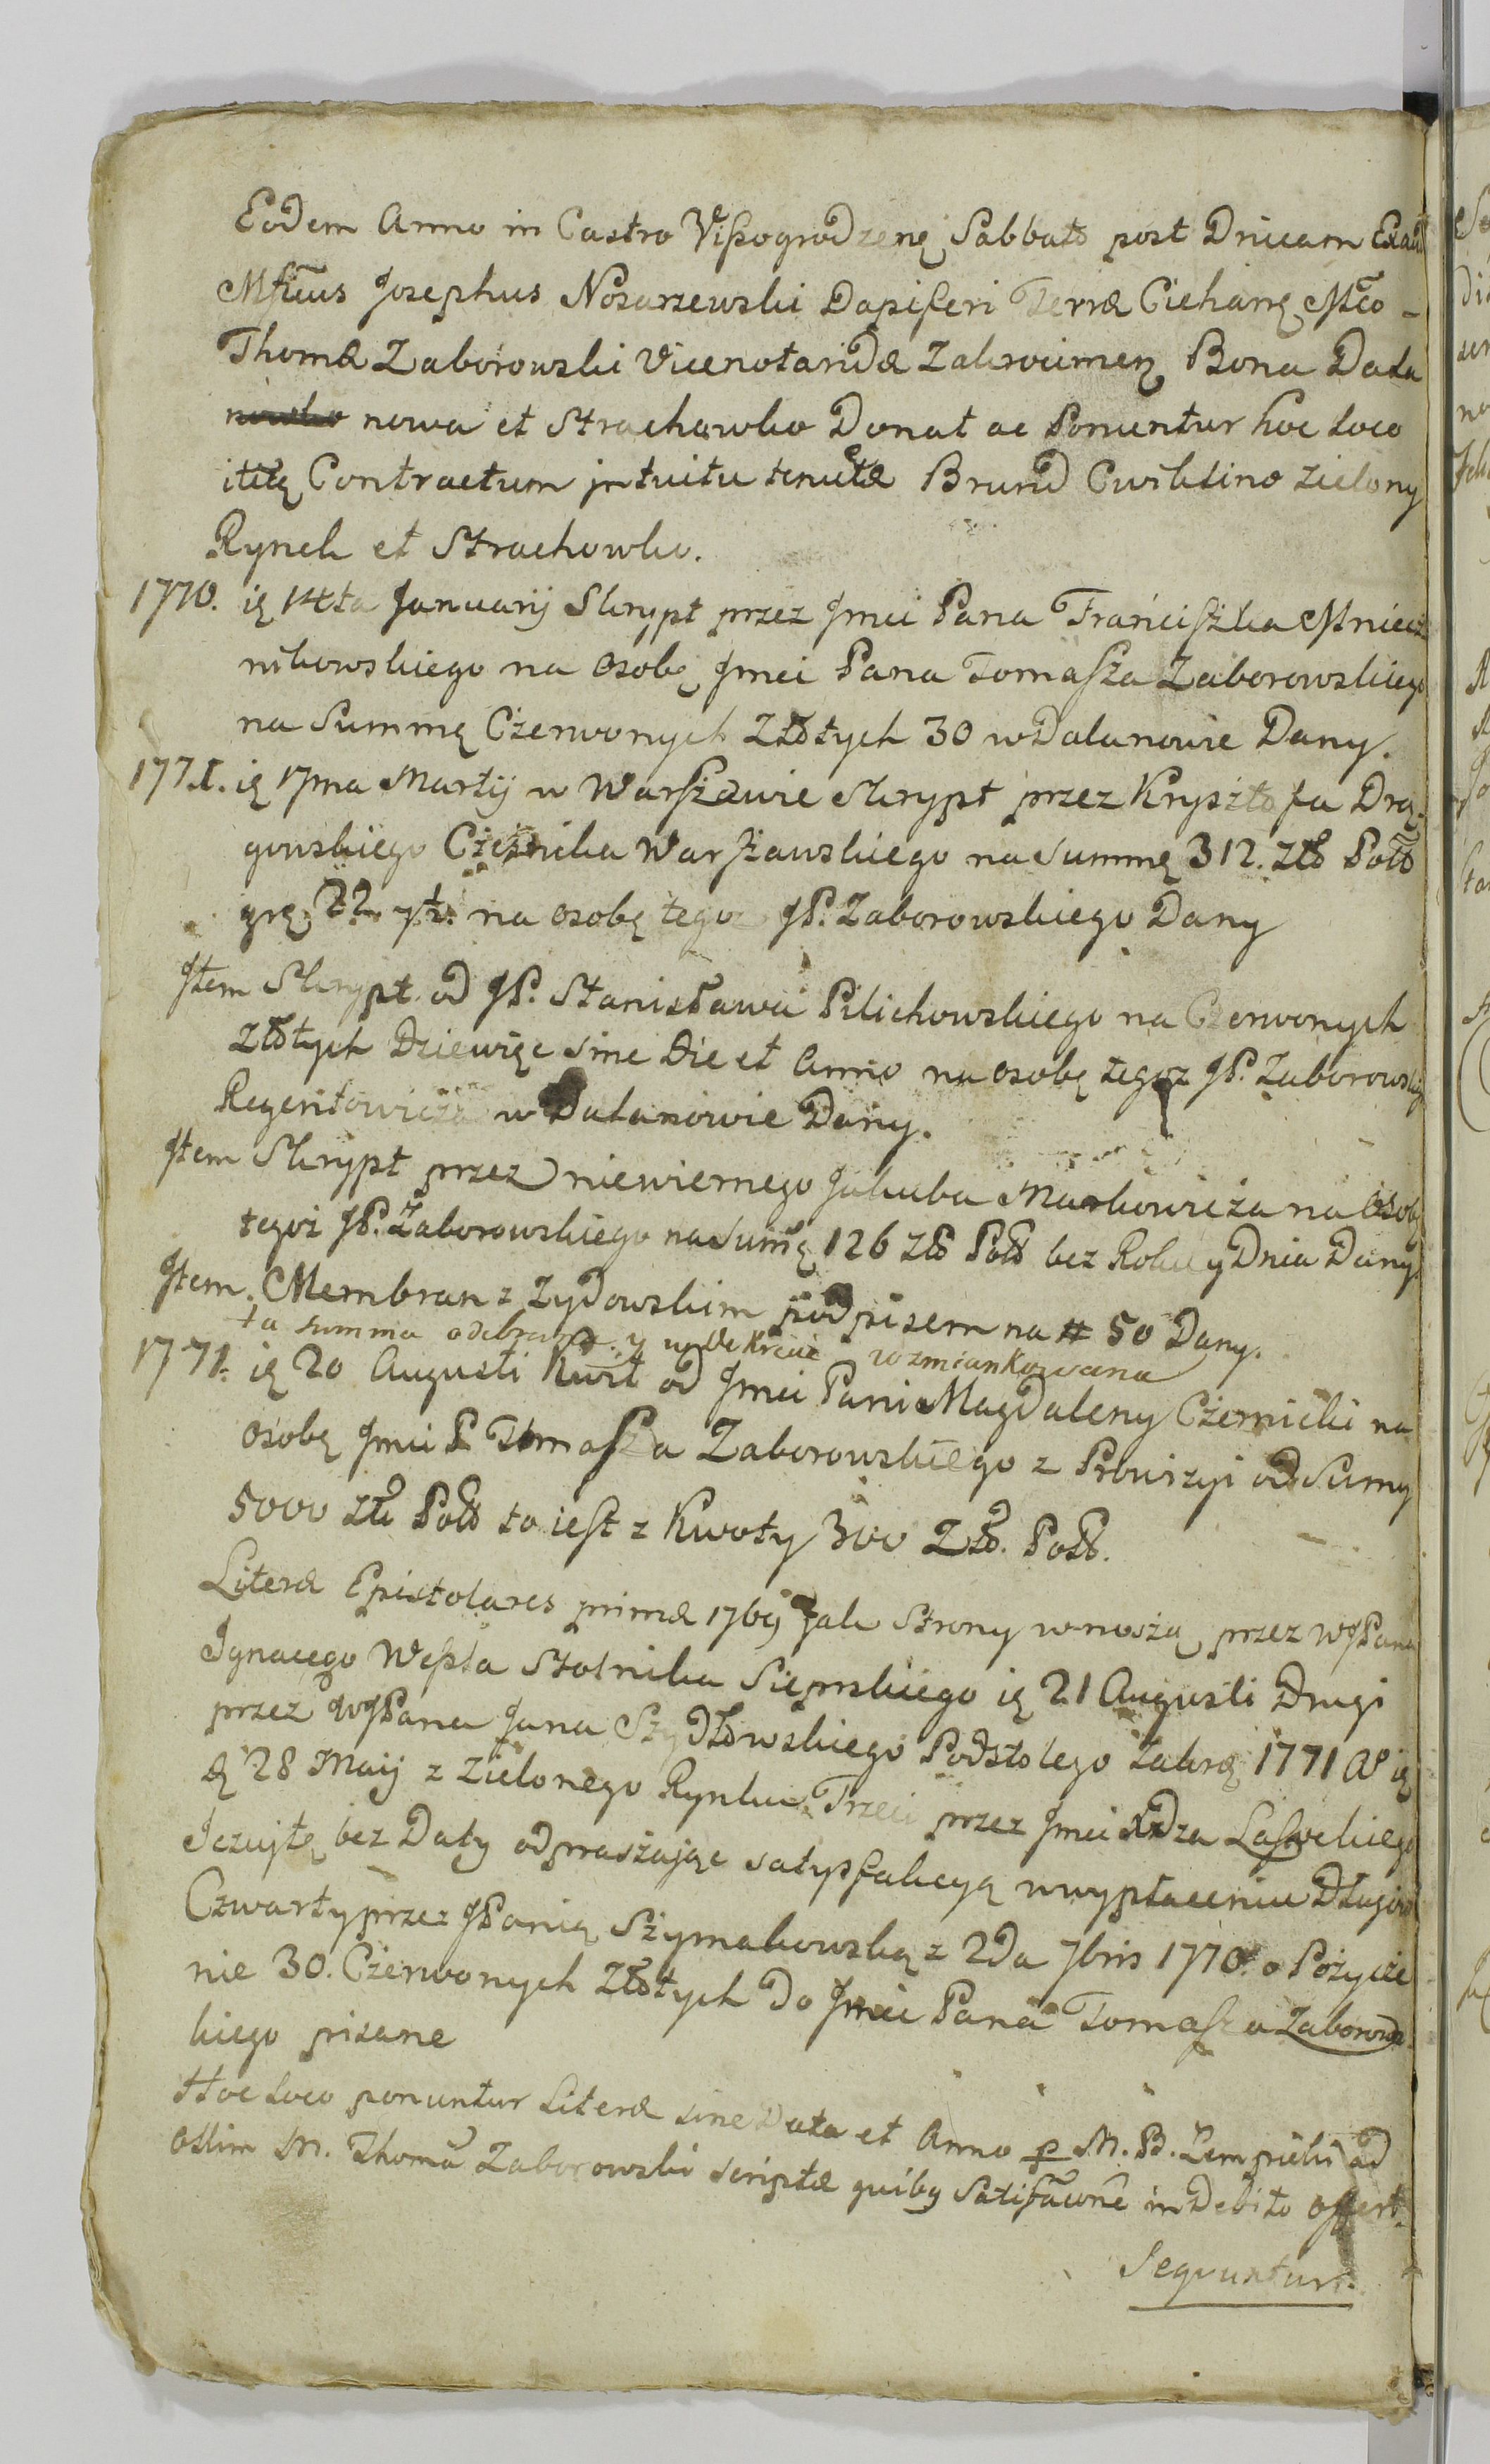 Eodem Anno in Castro Vissogrodzenę Sabbato post Dnicam Exau
Mficus Josephus Nosarzewski Dapiferi Terræ Ciehanę Mfco
Thomæ Zaborowski Vicenotaridæ Zakroczimen Bona Dala
nowa et Strachowko Donat ac Ponuntur hoc loco
Contractum intuitu tenutæ Ćwiklino Zielony
Rynek et Strachowko.
1770. ię 14ta Januarij Skrypt przez Jmci Pana Franciszka Mniecz
nikowskiego na Osobę Jmci Pana Tomasza Zaborowskiego
na Summę Czerwonych Złotych 30 w Dalanowie Dany.
1771. ię 17ma Martij w Warszawie Skrypt przez Krysztofa Drą
gowskiego Cześnika Warszawskiego na Summę 312. Zło Pollo
grę 22 na osobę tego JP. Zaborowskiego Dany
Jtem Skrypt od JP. Stanisława Pilichowskiego na Czerwonych
Złotych Dziewięc sine Die et Anno na osobę tegoz JP. Zaborowskig
Regentowicza w Dalanowie Dany.
Jtem Skrypt przez niewiernego Jakuba Markowicza na Osobę
tegoż JP. Zaborowskiego na Sumę 126 Zło Pollo bez Roku y Dnia Dany.
Jtem, Membran z Zydowskim podpisem na # 50 Dany.
ta summa odebrana y w Dekrecie wzmiankowana
1771. ię 20 Augusti Kwit od Jmci Pani Magdaleny Czernicki na
osobę Jmci P Tomasza Zaborowskiego z Prowizyi od Sumy
5000 Zło Pollo to iest z Kwoty 300 Zło. Pollo.
Literæ Epistolares primæ 1769 Jak Strony wnoszą przez WJPana
Jgnacego Wessla Stolnika Sierpskiego ię 21 Augusti Drugi
przez WJPana Jana Szydłowskiego Podstolego Zakrę 1771 Ao ię
28 Maij z Zielonego Rynku Trzeci przez Jmci Xdza
Jezuitę bez Daty odpraszaiąc satysfakcyą w wypłaceniu Długow
Czwarty przez JPanią Szymakowską z 2da 7bris 1770. o Pożycze
nie 30. Czerwonych Złotych Do Jmci Pana Tomasza Zaborows
kiego pisane
Hoc loco ponuntur Literæ sine Data et Anno p M. B. Zempicki ad
olim M. Thomã Zaborowski scriptæ quibg in Debito offert.
Sequuntur.